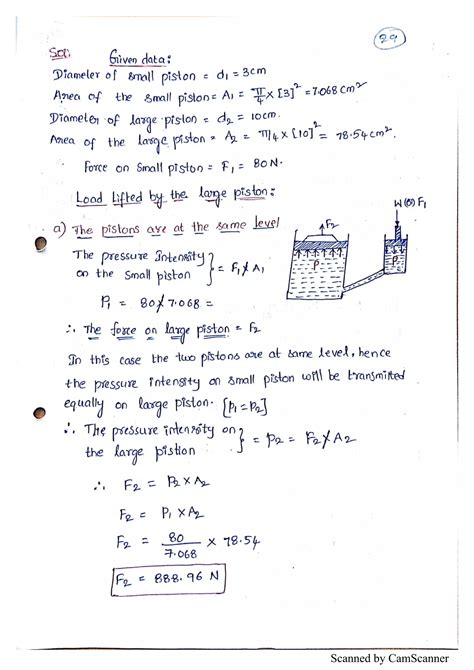 29
Sol: Given data:
Diameter of small piston = d₁ = 3cm
Area of the small piston = A₁ = π/4 × [3]² = 7.068 cm²
Diameter of large piston = d₂ = 10cm.
Area of the large piston = A₂ = π/4 × [10]² = 78.54 cm².
Force on small piston = F₁ = 80N.
Load lifted by the large piston:
a) The pistons are at the same level
F₂
W (or) F₁
P
P
The pressure Intensity
on the small piston } = F₁/A₁
P₁ = 80/7.068 =
∴ The force on large piston = F₂
In this case the two pistons are at same level, hence
the pressure intensity on small piston will be transmitted
equally on large piston. [P₁ = P₂]
∴ The pressure intensity on
the large pistion } = P₂ = F₂/A₂
∴ F₂ = P₂ × A₂
F₂ = P₁ × A₂
F₂ = 80/7.068 × 78.54
F₂ = 888.96 N
Scanned by CamScanner